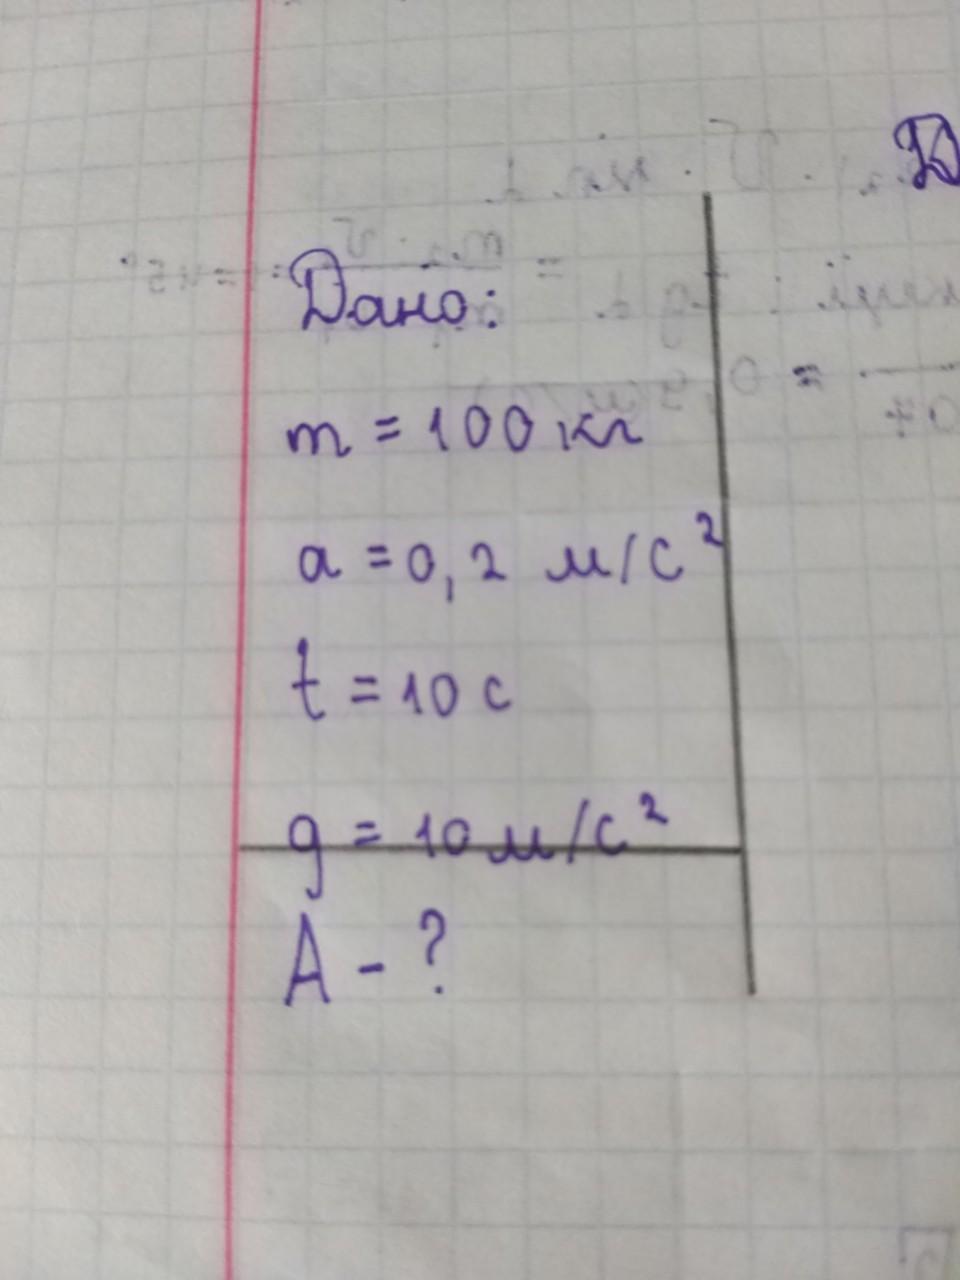 Дано:
m = 100 кг
a = 0,2 м/с²
t = 10 с
g = 10 м/с²
A - ?